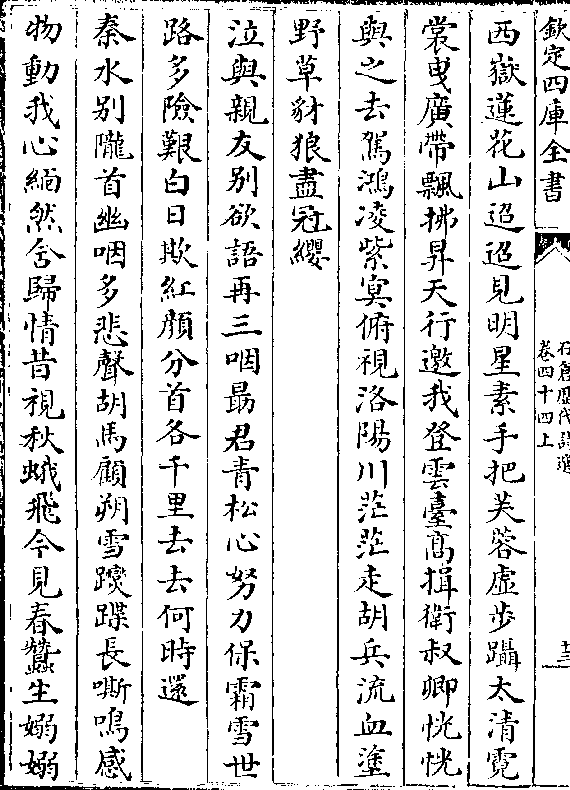 欽定四庫全書
石倉歷代詩選
卷四十四上
十三
西嶽蓮花山迢迢見明星素手把芙蓉虛步躡太清霓
裳曳廣帶飄拂昇天行邀我登雲臺高揖衛叔卿恍恍
與之去駕鴻凌紫冥俯視洛陽川茫茫走胡兵流血塗
野草豺狼盡冠纓
泣與親友別欲語再三咽勗君青松心努力保霜雪世
路多險艱白日欺紅顏分首各千里去去何時還
秦水別隴首幽咽多悲聲胡馬顧朔雪躞蹀長嘶鳴感
物動我心緬然含歸情昔視秋蛾飛今見春蠶生嫋嫋